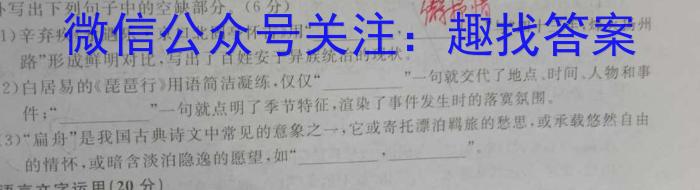 补写出下列句子中的空缺部分。(6分)
微信公众号关注：趣找答案
1)辛弃疾
路”形成鲜明对比,写出了百姓安于异族统治的现状。
2)白居易的《琵琶行》用语简洁凝练,仅仅“________”一句就交代了地点、时间、人物和事
件;“________”一句就点明了季节特征,渲染了事件发生时的落寞氛围。
(3)“扁舟”是我国古典诗文中常见的意象之一,它或寄托漂泊羁旅的愁思,或承载悠然自由
的情怀,或暗含淡泊隐逸的愿望,如“________,________”。
语言文字运用(20分)